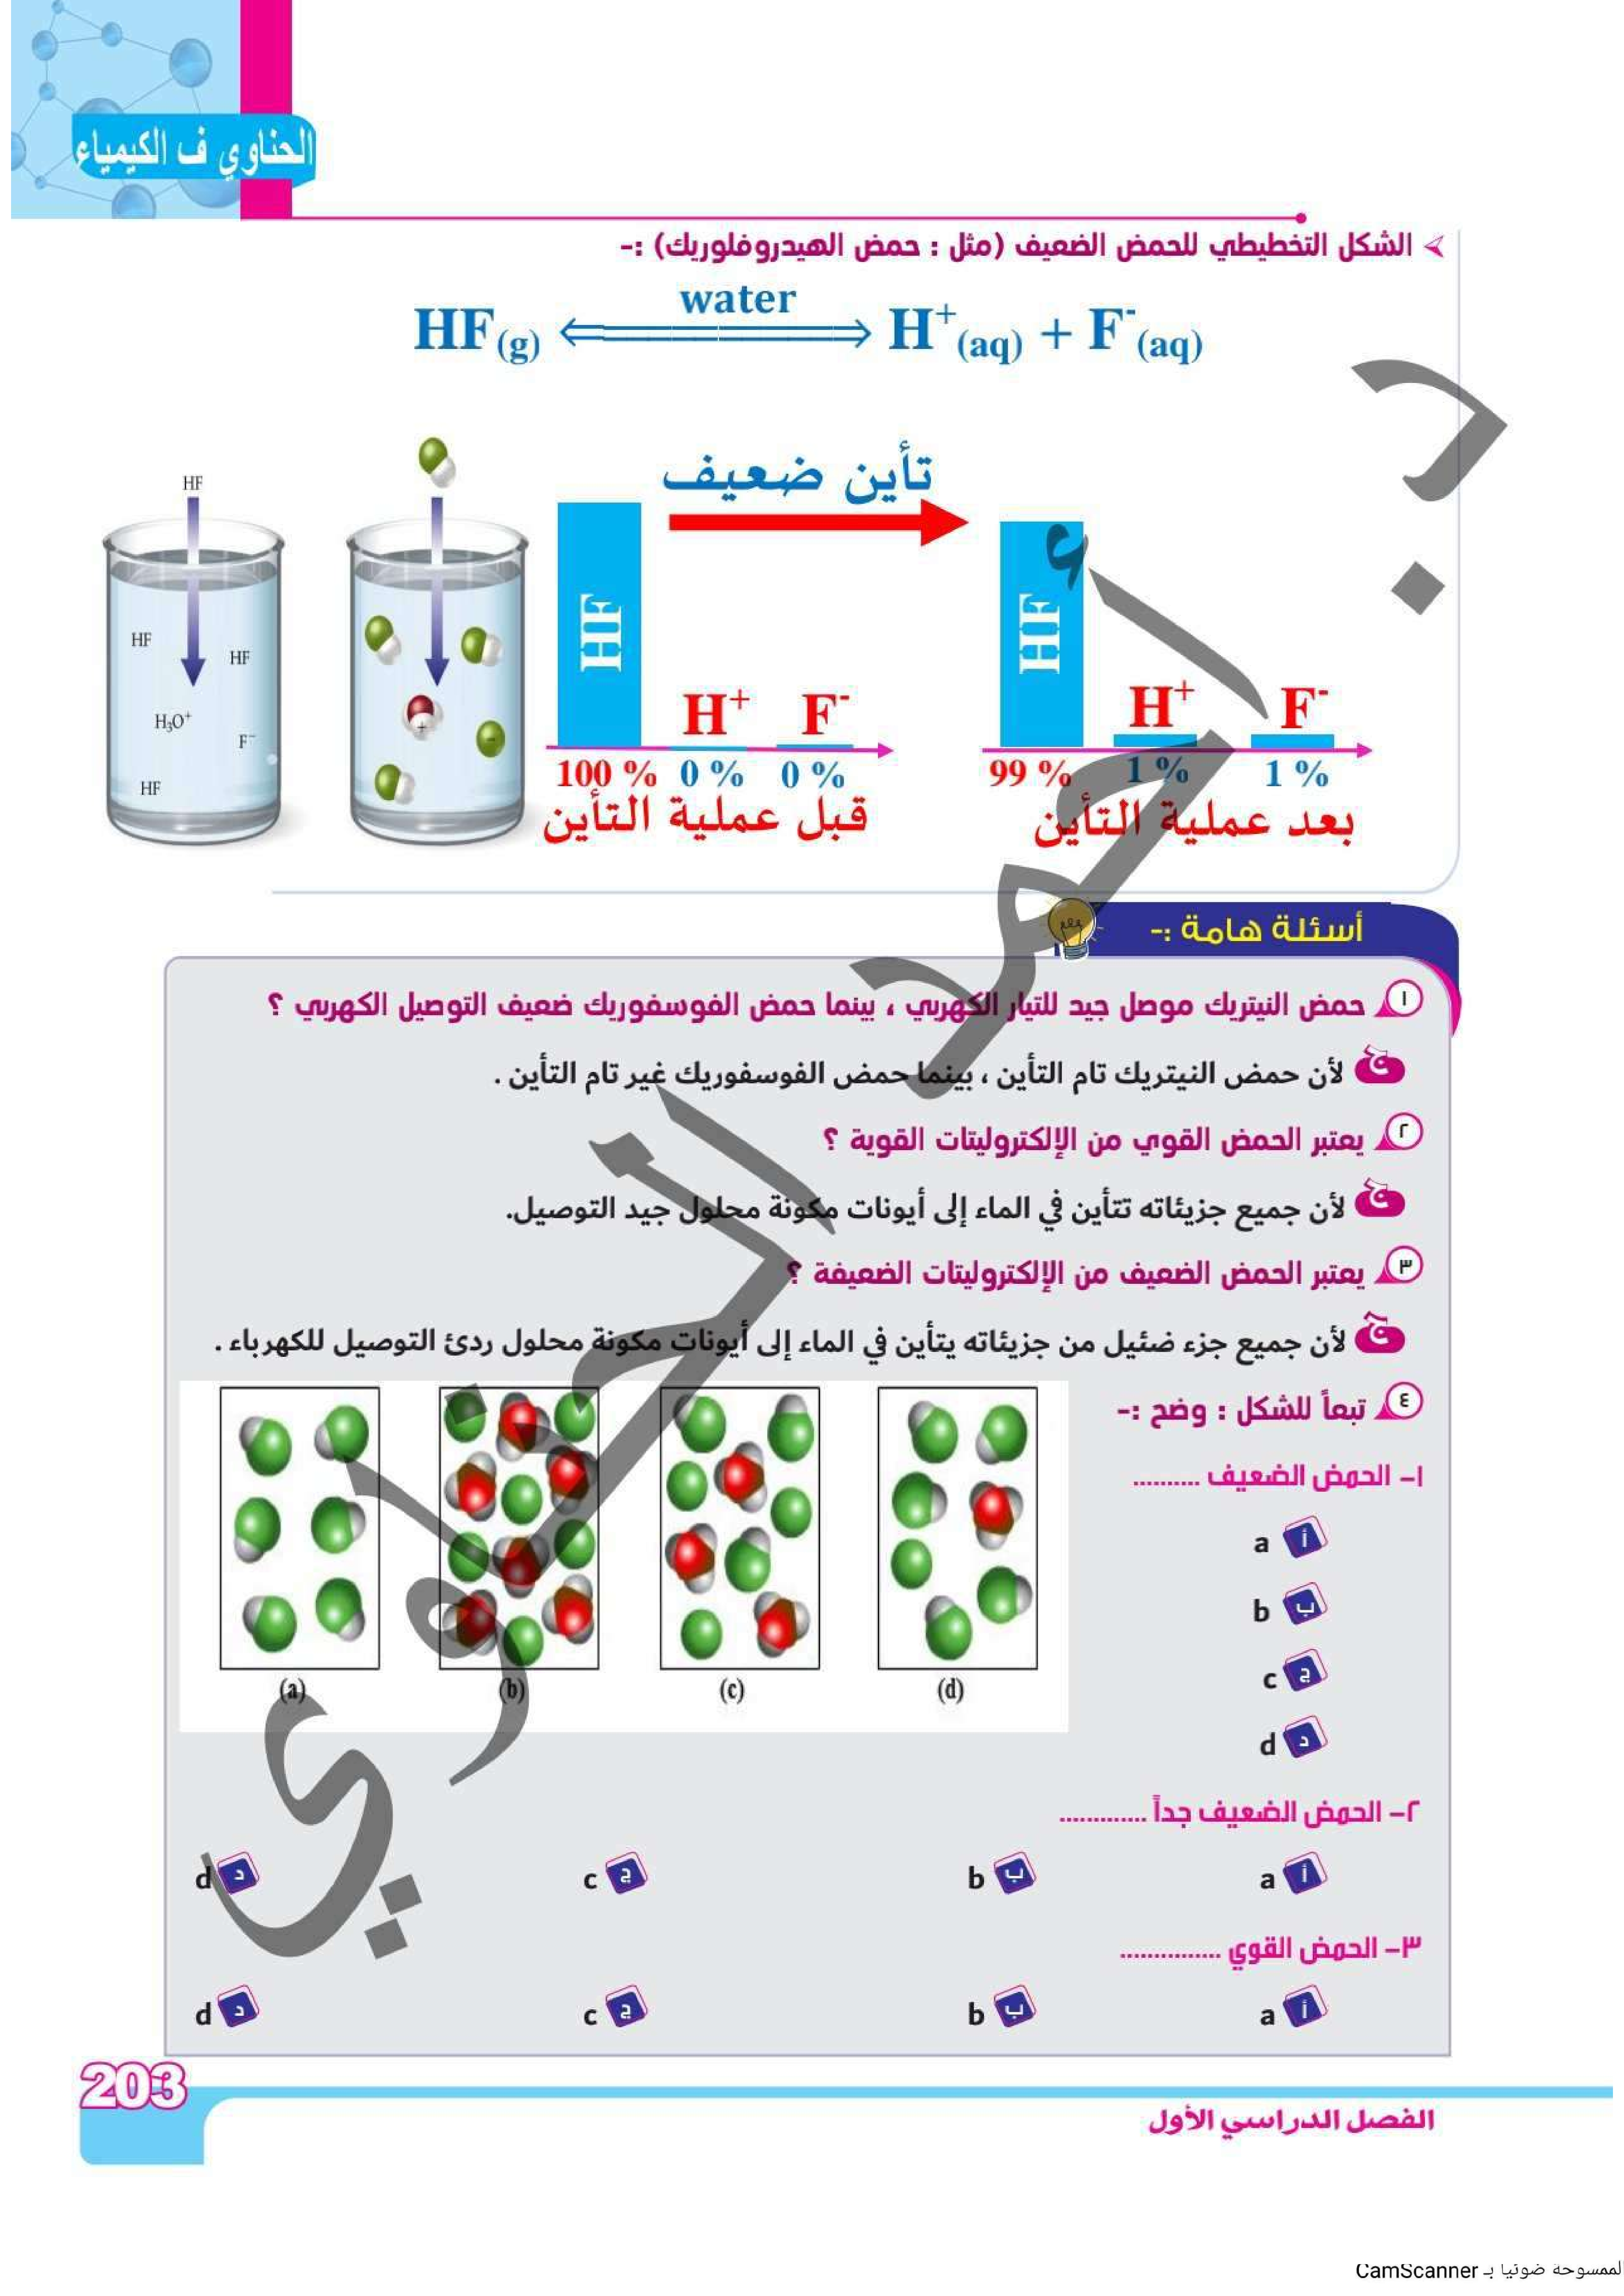 الحناوي ف الكيمياء
الشكل التخطيطي للحمض الضعيف (مثل : حمض الهيدروفلوريك) :-
water
HF(g) ⟺ H⁺(aq) + F⁻(aq)
تأين ضعيف
HF
HF
HF
H₃O⁺
F⁻
HF
HF
H⁺ F⁻
100 % 0 % 0 %
قبل عملية التأين
HF
H⁺ F⁻
99 % 1 % 1 %
بعد عملية التأين
أسئلة هامة :-
١ حمض النيتريك موصل جيد للتيار الكهربي ، بينما حمض الفوسفوريك ضعيف التوصيل الكهربي ؟
ج لأن حمض النيتريك تام التأين ، بينما حمض الفوسفوريك غير تام التأين .
٢ يعتبر الحمض القوي من الإلكتروليتات القوية ؟
ج لأن جميع جزيئاته تتأين في الماء إلى أيونات مكونة محلول جيد التوصيل.
٣ يعتبر الحمض الضعيف من الإلكتروليتات الضعيفة ؟
ج لأن جميع جزء ضئيل من جزيئاته يتأين في الماء إلى أيونات مكونة محلول ردئ التوصيل للكهرباء .
٤ تبعاً للشكل : وضح :-
(a) (b) (c) (d)
١- الحمض الضعيف ..........
أ a
ب b
ج c
د d
٢- الحمض الضعيف جداً .............
أ a ب b ج c د d
٣- الحمض القوي ...............
أ a ب b ج c د d
203
الفصل الدراسي الأول
الممسوحة ضوئيا بـ CamScanner